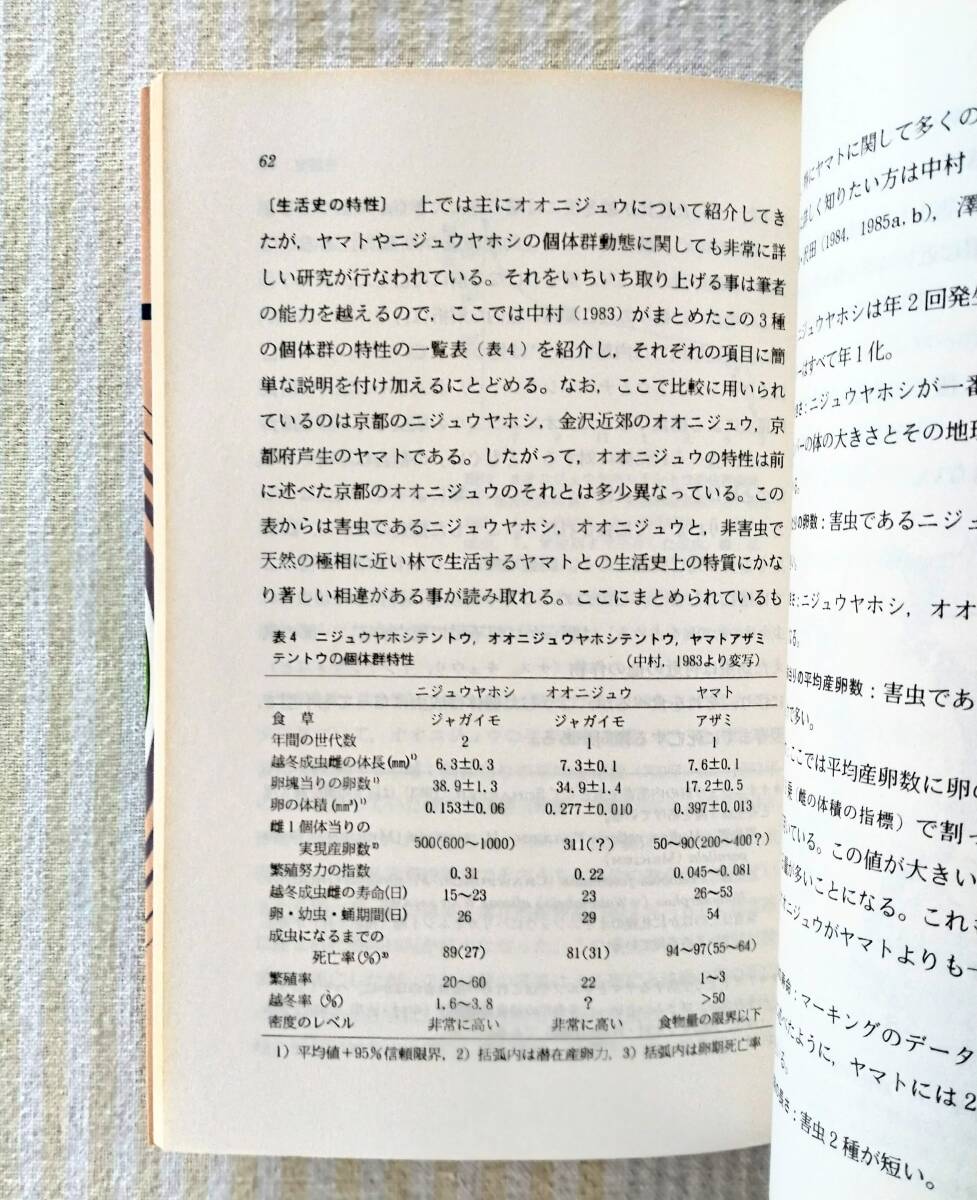 62
〔生活史の特性〕 上では主にオオニジュウについて紹介してき
たが,ヤマトやニジュウヤホシの個体群動態に関しても非常に詳
しい研究が行なわれている。それをいちいち取り上げる事は筆者
の能力を越えるので,ここでは中村(1983)がまとめたこの3種
の個体群の特性の一覧表(表4)を紹介し,それぞれの項目に簡
単な説明を付け加えるにとどめる。なお,ここで比較に用いられ
ているのは京都のニジュウヤホシ,金沢近郊のオオニジュウ,京
都府芦生のヤマトである。したがって,オオニジュウの特性は前
に述べた京都のオオニジュウのそれとは多少異なっている。この
表からは害虫であるニジュウヤホシ,オオニジュウと,非害虫で
天然の極相に近い林で生活するヤマトとの生活史上の特質にかな
り著しい相違がある事が読み取れる。ここにまとめられているも
表4 ニジュウヤホシテントウ,オオニジュウヤホシテントウ,ヤマトアザミ
テントウの個体群特性 (中村,1983より変写)
ニジュウヤホシ オオニジュウ ヤマト
食草 ジャガイモ ジャガイモ アザミ
年間の世代数 2 1 1
越冬成虫雌の体長(mm)1) 6.3±0.3 7.3±0.1 7.6±0.1
卵塊当りの卵数1) 38.9±1.3 34.9±1.4 17.2±0.5
卵の体積(mm3)1) 0.153±0.06 0.277±0.010 0.397±0.013
雌1個体当りの
実現産卵数2) 500(600〜1000) 311(?) 50〜90(200〜400?)
繁殖努力の指数 0.31 0.22 0.045〜0.081
越冬成虫雌の寿命(日) 15〜23 23 26〜53
卵・幼虫・蛹期間(日) 26 29 54
成虫になるまでの
死亡率(%)3) 89(27) 81(31) 94〜97(55〜64)
繁殖率 20〜60 22 1〜3
越冬率(%) 1.6〜3.8 ? >50
密度のレベル 非常に高い 非常に高い 食物量の限界以下
1)平均値+95%信頼限界,2)括弧内は潜在産卵力,3)括弧内は卵期死亡率
にヤマトに関して多くの
しく知りたい方は中村
沢田(1984, 1985a, b), 澤
ニジュウヤホシは年2回発生
はすべて年1化。
ニジュウヤホシが一番
の体の大きさとその地理
の卵数:害虫であるニジュ
ニジュウヤホシ,オオ
りの平均産卵数:害虫であ
で多い。
ここでは平均産卵数に卵の
(雌の体積の指標)で割っ
いている。この値が大きい
が多いことになる。これ
ニジュウがヤマトよりも一
マーキングのデータ
べたように,ヤマトには2
る。
害虫2種が短い。